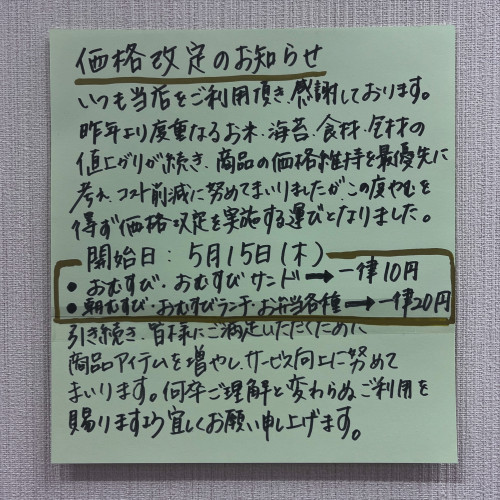 価格改定のお知らせ
いつも当店をご利用頂き、感謝しております。
昨年より度重なるお米、海苔、食材、包材の
値上がりが続き、商品の価格維持を最優先に
考え、コスト削減に努めてまいりましたが、この度やむを
得ず価格改定を実施する運びとなりました。
開始日：5月15日(木)
● おむすび・おむすびサンド➡一律10円
● 朝むすび・おむすびランチ・お弁当各種➡一律20円
引き続き、皆様にご満足いただくために
商品アイテムを増やし、サービス向上に努めて
まいります。何卒ご理解と変わらぬご利用を
賜りますよう宜しくお願い申し上げます。